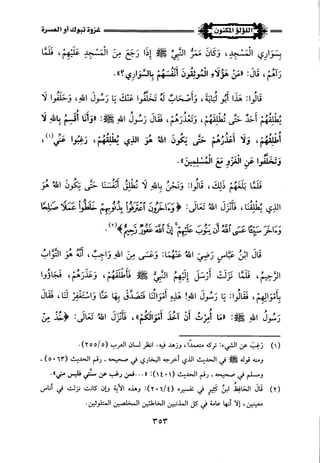 غزوة تبوك أو العسرة
اللؤلؤ المكنون
بسواري المسجد، وكان ممر النبي ﷺ إذا رجع من المسجد عليهم، فلما
رآهم، قال: «من هؤلاء الموثقون أنفسهم بالسواري؟».
قالوا: هذا أبو لبابة، وأصحاب له، تخلفوا عنك يا رسول الله، وحلفوا لا
يطلقهم أحد حتى تطلقهم، وتعذرهم، فقال رسول الله ﷺ: «وأنا أقسم بالله لا
أطلقهم، ولا أعذرهم حتى يكون الله هو الذي يطلقهم، رغبوا عني(١)،
وتخلفوا عن الغزو مع المسلمين».
فلما بلغهم ذلك، قالوا: ونحن بالله لا نطلق أنفسنا حتى يكون الله هو
الذي يطلقنا، فأنزل الله تعالى: ﴿وآخرون اعترفوا بذنوبهم خلطوا عملا صالحا
وآخر سيئا عسى الله أن يتوب عليهم إن الله غفور رحيم﴾(٢).
قال ابن عباس رضي الله عنهما: عسى من الله واجب، وإنه هو التواب
الرحيم، فلما نزلت أرسل إليهم النبي ﷺ فأطلقهم، وعذرهم، فجاؤوا
بأموالهم، فقالوا: يا رسول الله! هذه أموالنا فتصدق بها عنا واستغفر لنا، فقال
رسول الله ﷺ: «ما أمرت أن آخذ أموالكم»، فأنزل الله تعالى: ﴿خذ من
(١) رغب عن الشيء: تركه متعمدا، وزهد فيه. انظر لسان العرب (٥/ ٢٥٥).
ومنه قوله ﷺ في الحديث الذي أخرجه البخاري في صحيحه - رقم الحديث (٥٠٦٣) -
ومسلم في صحيحه - رقم الحديث (١٤٠١): «... فمن رغب عن سنتي فليس مني».
(٢) قال الحافظ ابن كثير في تفسيره (٤/ ٢٠٦): وهذه الآية وإن كانت نزلت في أناس
معينين، إلا أنها عامة في كل المذنبين الخاطئين المخلصين المتلوثين.
٣٥٣